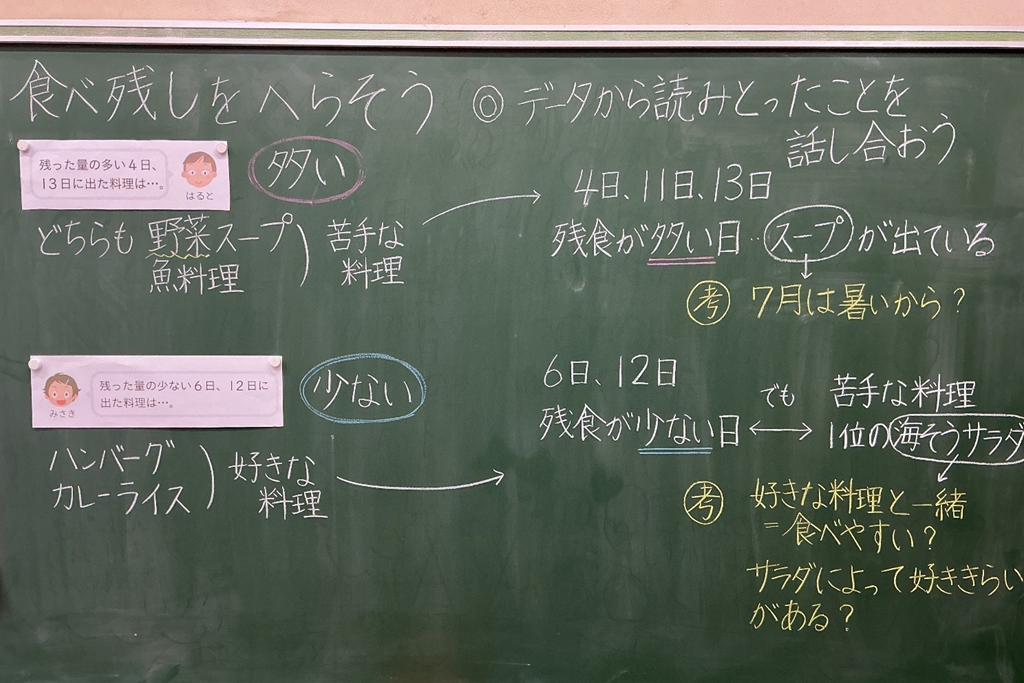 食べ残しをへらそう ◎データから読みとったことを
話し合おう
残った量の多い4日、
13日に出た料理は…。
はると
多い
どちらも 野菜スープ
魚料理
苦手な
料理
4日、11日、13日
残食が多い日‥スープが出ている
考 7月は暑いから？
残った量の少ない6日、12日に
出た料理は…。
みさき
少ない
ハンバーグ
カレーライス
好きな
料理
6日、12日
残食が少ない日
でも
苦手な料理
1位の海そうサラダ
考 好きな料理と一緒
=食べやすい？
サラダによって好ききらい
がある？